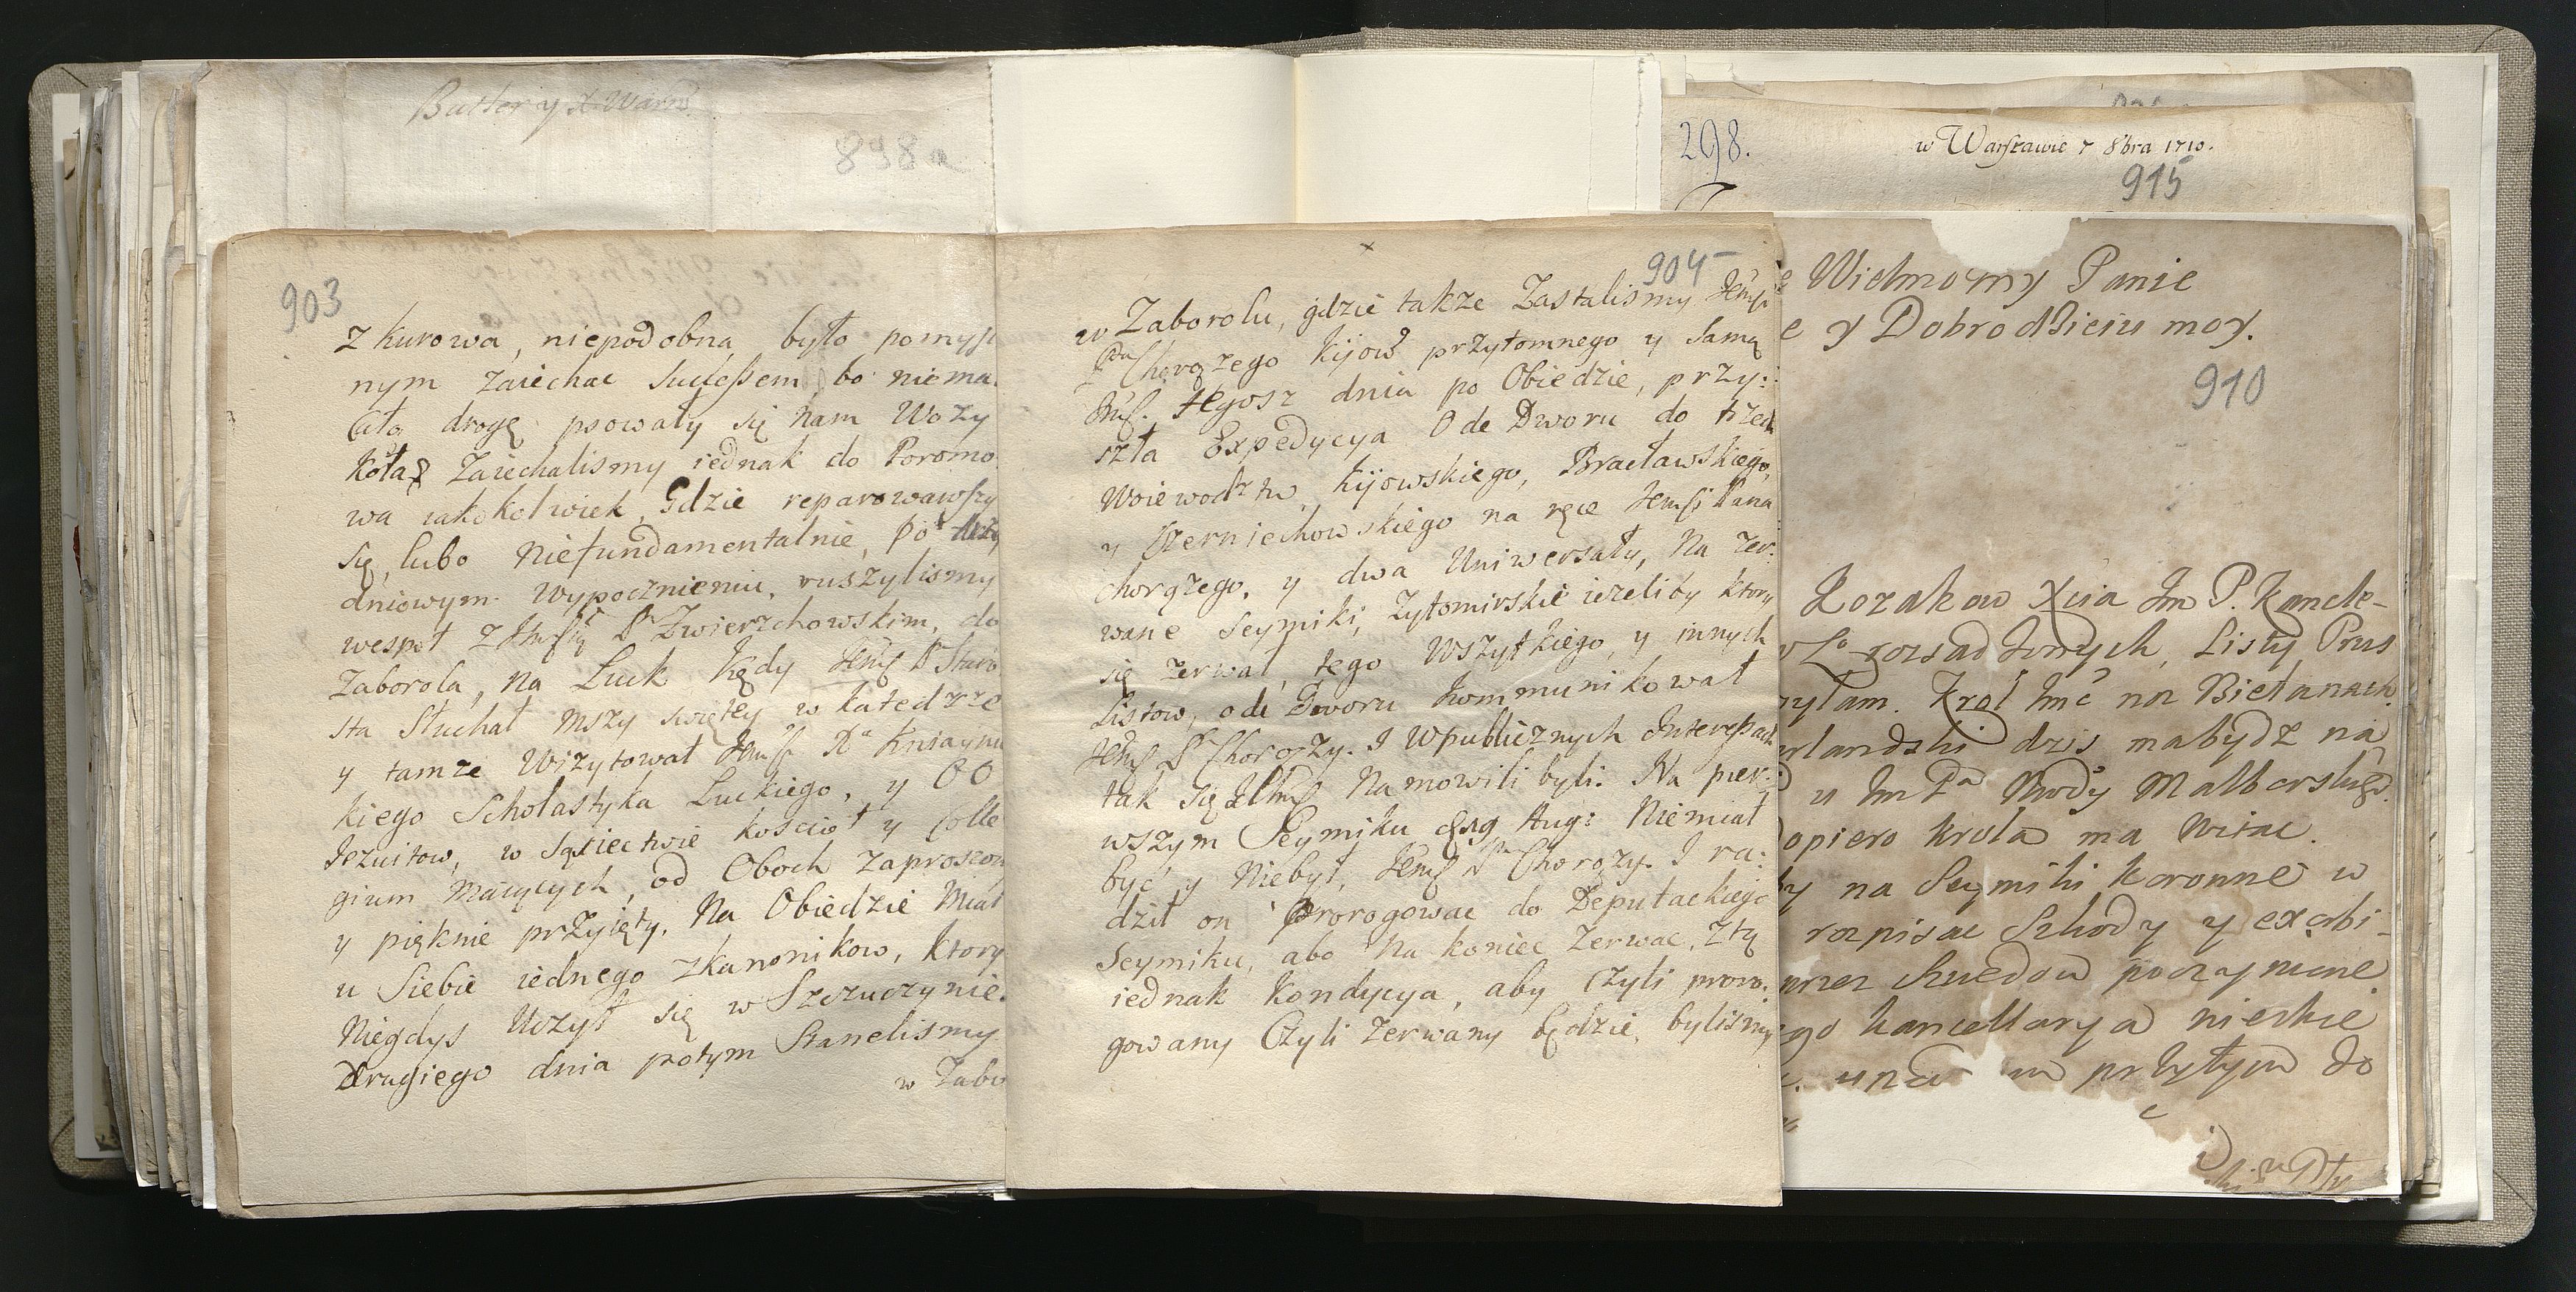 Battory z Warsz.
898a
903
z kurowa, niepodobna było pomyśl
nym zaiechac Sucessem, bo niema.
Całą drogę psowały się nam Wozy
Koła, Zaiechalismy iednak do Poromo
wa iakokolwiek, Gdzie reparowawszy
się, lubo niefundamentalnie, po
dniowym Wypocznieniu, ruszylismy
wespoł z Jmsią Pm Zwierzchowskim, do
Zaborola, na Luck kędy Jemsć P. Staro
sta Słuchał mszy swiętey w katedrze
y tamze Wizytował Jemsć Xa
kiego Scholastyka Luckiego, y OO
Jezuitow, w Sąsiectwie kosciół y Colle
gium Maiących, od Oboch Zaproszon
y pięknie przyięty, Na Obiedzie Miał
u Siebie iednego zkanonikow, ktory
Niegdys Uczył się w Szczuczynie.
Drugiego dnia potym Stanelismy
w Zabo
904
w Zaborolu, gdzie takze Zastalismy Jemsć
Pa Chorązego Kijow przytomnego y Samą
Jmsć. Tegosz dnia po Obiedzie, przy:
szła Expedycya Ode Dworu do trzech
Woiewodztw, Kijowskiego, Bracławskiego,
y Czerniechowskiego na ręce Jemsci Pana
chorązego, y dwa Uniwersały, Na zer:
wane Seymiki, Zytomirskie iezeliby ktory
się zerwał, tego Wszytkiego, y innych
Listow, ode Dworu kommunikował
Jemsć P Chorązy. I Wpublicznych Interessach
tak się Namowili byli. Na pier:
wszym Seymiku Aug: Niemiał
być, y Niebył, Jemsć Pn Chorązy. I ra:
dził on Prorogowac do Deputackiego
Seymiku, abo Na koniec Zerwac, Ztą
iednak kondycya, aby Czyli proro.
gowany Czyli Zerwany będzie, bylismy
298.
w Warszawie 7 8bra 1710.
915
Wielmozny Panie
e y Dobrodzieiu moy.
910
Kozakow Xcia Jm P. Kancle-
rozsadzonych, Listy Prus
rzytam. Krol Jmć na Bielanach.
urlandzki dzis mabydz na
u Jm Pa Wwdy Malborskiego.
opiero krola ma witac.
by na Seymiki koronne w
rozpisac Szkody y exorbi-
przez Szwedow poczynione.
go kancellarya nieskie
una m przytym do